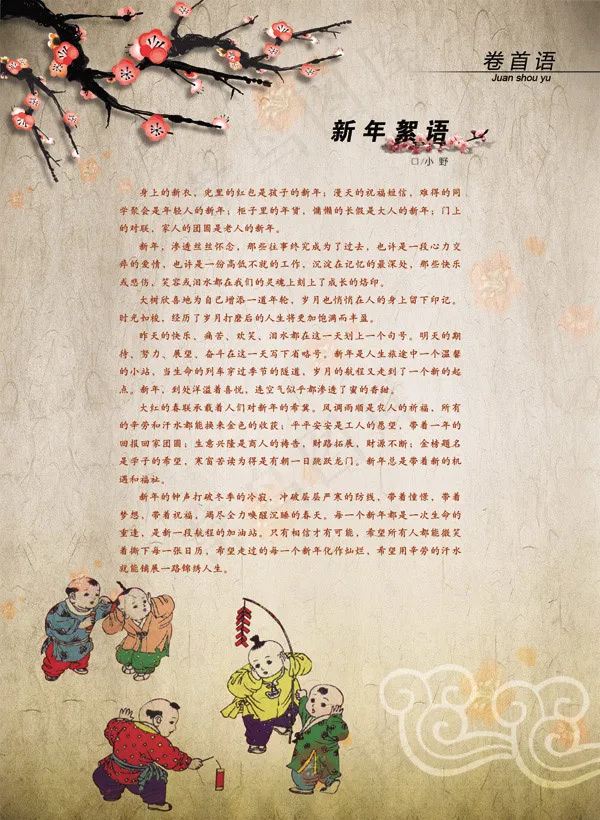 卷首语
Juan shou yu
新年絮语
□/小 野
身上的新衣，兜里的红包是孩子的新年；漫天的祝福短信，难得的同
学聚会是年轻人的新年；柜子里的年货，慵懒的长假是大人的新年；门上
的对联，家人的团圆是老人的新年。
新年，渗透丝丝怀念，那些往事终究成为了过去，也许是一段心力交
瘁的爱情，也许是一份高低不就的工作，沉淀在记忆的最深处，那些快乐
或悲伤，笑容或泪水都在我们的灵魂上刻上了成长的烙印。
大树欣喜地为自己增添一道年轮，岁月也悄悄在人的身上留下印记。
时光如梭，经历了岁月打磨后的人生将更加饱满而丰盈。
昨天的快乐、痛苦、欢笑、泪水都在这一天划上一个句号。明天的期
待、努力、展望、奋斗在这一天写下省略号。新年是人生旅途中一个温馨
的小站，当生命的列车穿过季节的隧道，岁月的航程又走到了一个新的起
点。新年，到处洋溢着喜悦，连空气似乎都渗透了蜜的香甜。
大红的春联承载着人们对新年的希冀。风调雨顺是农人的祈福，所有
的辛劳和汗水都能换来金色的收获；平平安安是工人的愿望，带着一年的
回报回家团圆；生意兴隆是商人的祷告，财路拓展，财源不断；金榜题名
是学子的希望，寒窗苦读为得是有朝一日跳跃龙门。新年总是带着新的机
遇和福祉。
新年的钟声打破冬季的冷寂，冲破层层严寒的防线，带着憧憬，带着
梦想，带着祝福，竭尽全力唤醒沉睡的春天。每一个新年都是一次生命的
重逢，是新一段航程的加油站。只有相信才有可能，希望所有人都能微笑
着撕下每一张日历，希望走过的每一个新年化作灿烂，希望用辛劳的汗水
就能铺展一路锦绣人生。